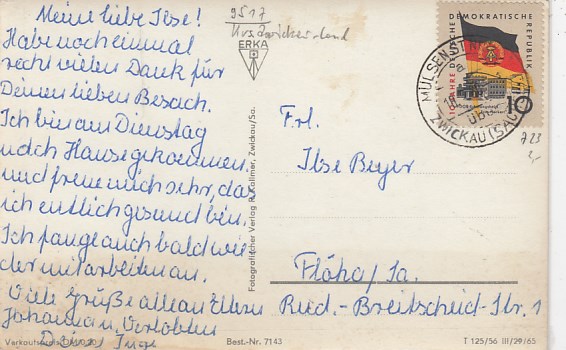 Meine liebe Ilse!
Habe noch einmal
recht vielen Dank für
Deinen lieben Besuch.
Ich bin am Dienstag
nach Hause gekommen
und freue mich sehr, das
ich entlich gesund bin.
Ich fange auch bald wie
der mit arbeiten an.
Viele Grüße allen Eltern
Verlobten
Deine Inge
Verkaufspreis
Best.-Nr. 7143
T 125/56 III/29/65
9517
ERKA
Fotografischer Verlag R. Kallmer, Zwickau/Sa.
DEUTSCHE DEMOKRATISCHE REPUBLIK
10 JAHRE
10
MÜLSEN ST
über
ZWICKAU (SACHS
723
Frl.
Ilse Beyer
Flöha/Sa.
Rud.-Breitscheid-Str. 1